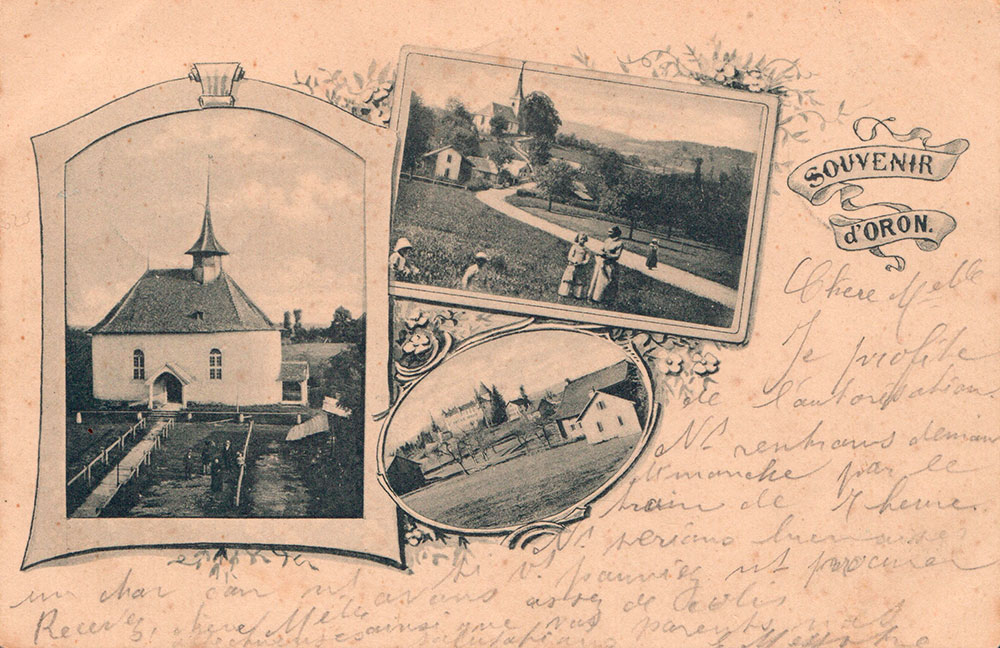 SOUVENIR
d'ORON.
Chere Melle
Je profite
de l'autorisation.
Ns. rentrons demain
dimanche par le
train de 7 heures.
Ns. serions
si vs. pouviez ns. procurer
un char car ns. avons assez de colis
Recevez, chère Melle ainsi que vos parents nos
salutations